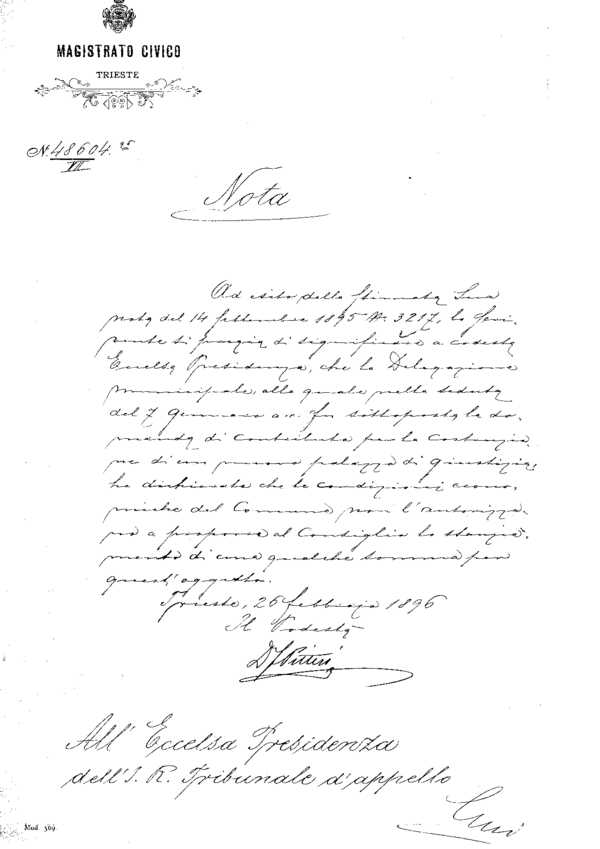 MAGISTRATO CIVICO
TRIESTE
N. 48604 95
VII
Nota
Ad esito della stimata Sua
nota del 14 settembre 1895 N. 3217, lo scri-
vente si pregia di significare a codesta
Eccelsa Presidenza, che la Delegazione
municipale, alla quale nella seduta
del 7 Gennaio a.c. fu sottoposta la do-
manda di contributo per la costruzio-
ne di un nuovo palazzo di giustizia,
ha dichiarato che le condizioni econo-
miche del Comune non l'autorizza-
no a proporre al Consiglio lo stanzia-
mento di una qualche somma per
quest'oggetto.
Trieste, 26 febbraio 1896
Il Podestà
D Pitteri
All' Eccelsa Presidenza
dell' I. R. Tribunale d'appello
Qui
Mod. 369.